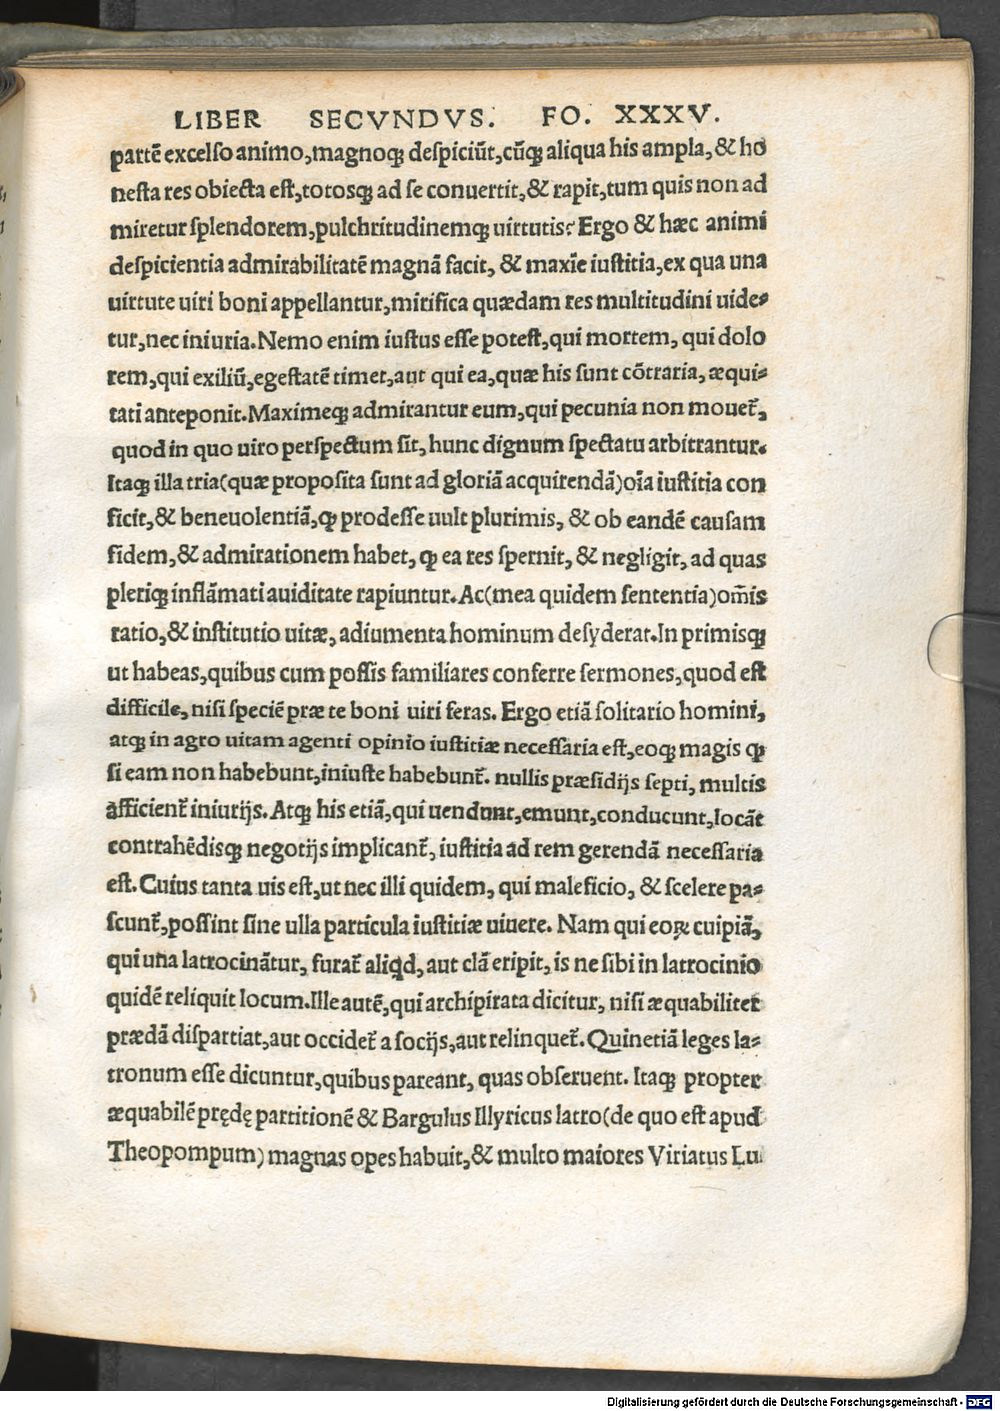 LIBER SECVNDVS. FO. XXXV.
partē excelſo animo,magnoqꝫ deſpiciūt,cūqꝫ aliqua his ampla,& ho
neſta res obiecta eſt,totosqꝫ ad ſe conuertit,& rapit,tum quis non ad
miretur ſplendorem,pulchritudinemqꝫ uirtutis? Ergo & hæc animi
deſpicientia admirabilitatē magnā facit, & maxīe iuſtitia,ex qua una
uirtute uiri boni appellantur,mirifica quædam res multitudini uide⸗
tur,nec iniuria.Nemo enim iuſtus eſſe poteſt,qui mortem, qui dolo
rem,qui exiliū,egeſtatē timet,aut qui ea,quæ his ſunt cōtraria, æqui⸗
tati anteponit.Maximeqꝫ admirantur eum,qui pecunia non mouet̃,
quod in quo uiro perſpectum ſit, hunc dignum ſpectatu arbitrantur.
Itaqꝫ illa tria(quæ propoſita ſunt ad gloriā acquirendā)oīa iuſtitia con
ficit,& beneuolentiā,ꝙ prodeſſe uult plurimis, & ob eandē cauſam
fidem,& admirationem habet, ꝙ ea res ſpernit, & negligit, ad quas
pleriqꝫ inflāmati auiditate rapiuntur.Ac(mea quidem ſententia)om̄is
ratio,& inſtitutio uitæ, adiumenta hominum deſyderat.In primisqꝫ
ut habeas,quibus cum poſſis familiares conferre ſermones,quod eſt
difficile, niſi ſpeciē præ te boni uiri feras. Ergo etiā ſolitario homini,
atqꝫ in agro uitam agenti opinio iuſtitiæ neceſſaria eſt,eoqꝫ magis ꝙ
ſi eam non habebunt,iniuſte habebunt̃. nullis præſidijs ſepti, multis
afficient̃ iniurijs. Atqꝫ his etiā,qui uendunt,emunt,conducunt,locāt
contrahēdisqꝫ negotijs implicant̃, iuſtitia ad rem gerendā neceſſaria
eſt. Cuius tanta uis eſt,ut nec illi quidem, qui maleficio, & ſcelere pa⸗
ſcunt̃,poſſint ſine ulla particula iuſtitiæ uiuere. Nam qui eoꝝ cuipiā,
qui una latrocinātur, furat̃ aliqd, aut clā eripit, is ne ſibi in latrocinio
quidē reliquit locum.Ille autē,qui archipirata dicitur, niſi æquabiliter
prædā diſpartiat,aut occidet̃ a ſocijs,aut relinquet̃. Quinetiā leges la⸗
tronum eſſe dicuntur,quibus pareant, quas obſeruent. Itaqꝫ propter
æquabilē prędę partitionē & Bargulus Illyricus latro(de quo eſt apud
Theopompum) magnas opes habuit,& multo maiores Viriatus Lu
Digitalisierung gefördert durch die Deutsche Forschungsgemeinschaft - DFG